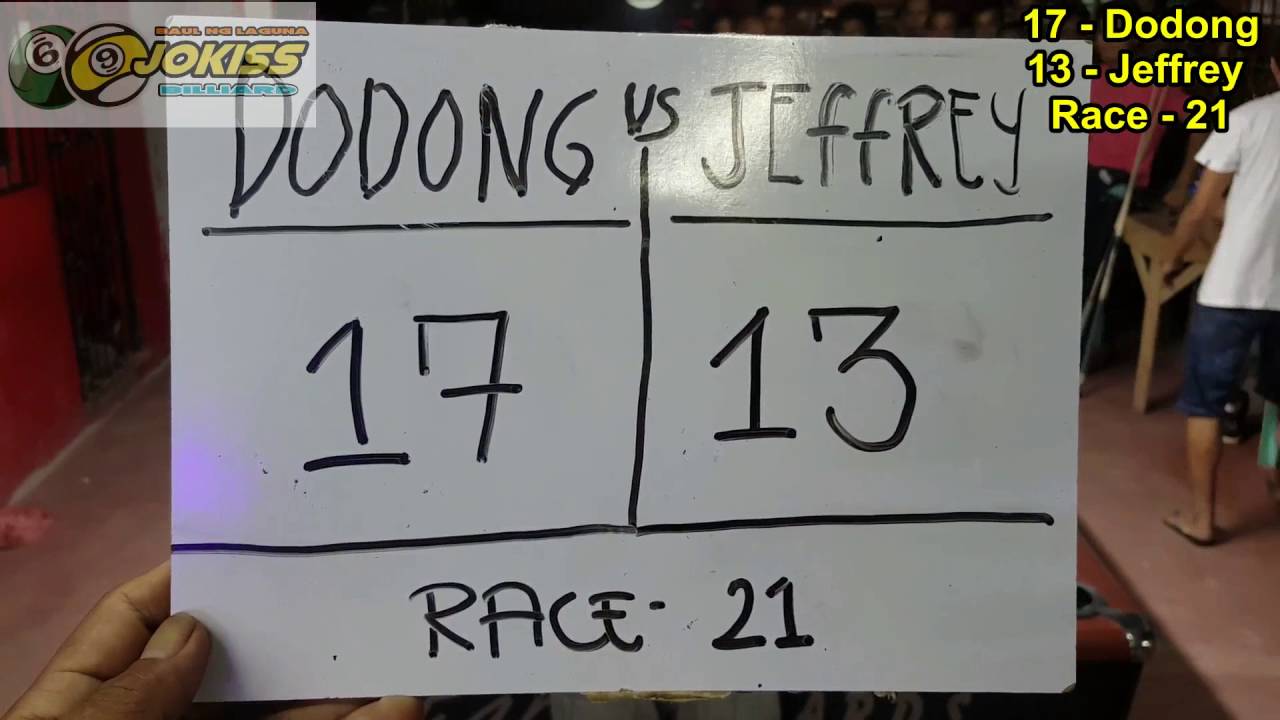 BAUL NG LAGUNA
69 JOKISS
BILLIARD
17 - Dodong
13 - Jeffrey
Race - 21
DODONG VS JEffREY
17 13
RACE - 21